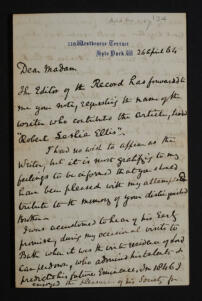 118 Westbourne Terrace
Hyde Park. W.
26 April 64
Dear Madam.
The Editor of the Record has forwarded to
me your note, requesting the name of the
writer who contributed the article, headed
"Robert Leslie Ellis".
I had no wish to appear as the
Writer, but it is most gratifying to my
feelings to be informed that you should
have been pleased with my attempted
tribute to the memory of your distinguished
Brother.
I was accustomed to hear of his early
promise, during my occasional visits to
Bath when it was the residence of
who admired his talents &
predicted his future eminence. In 1846 I
enjoyed the pleasure of his Society for